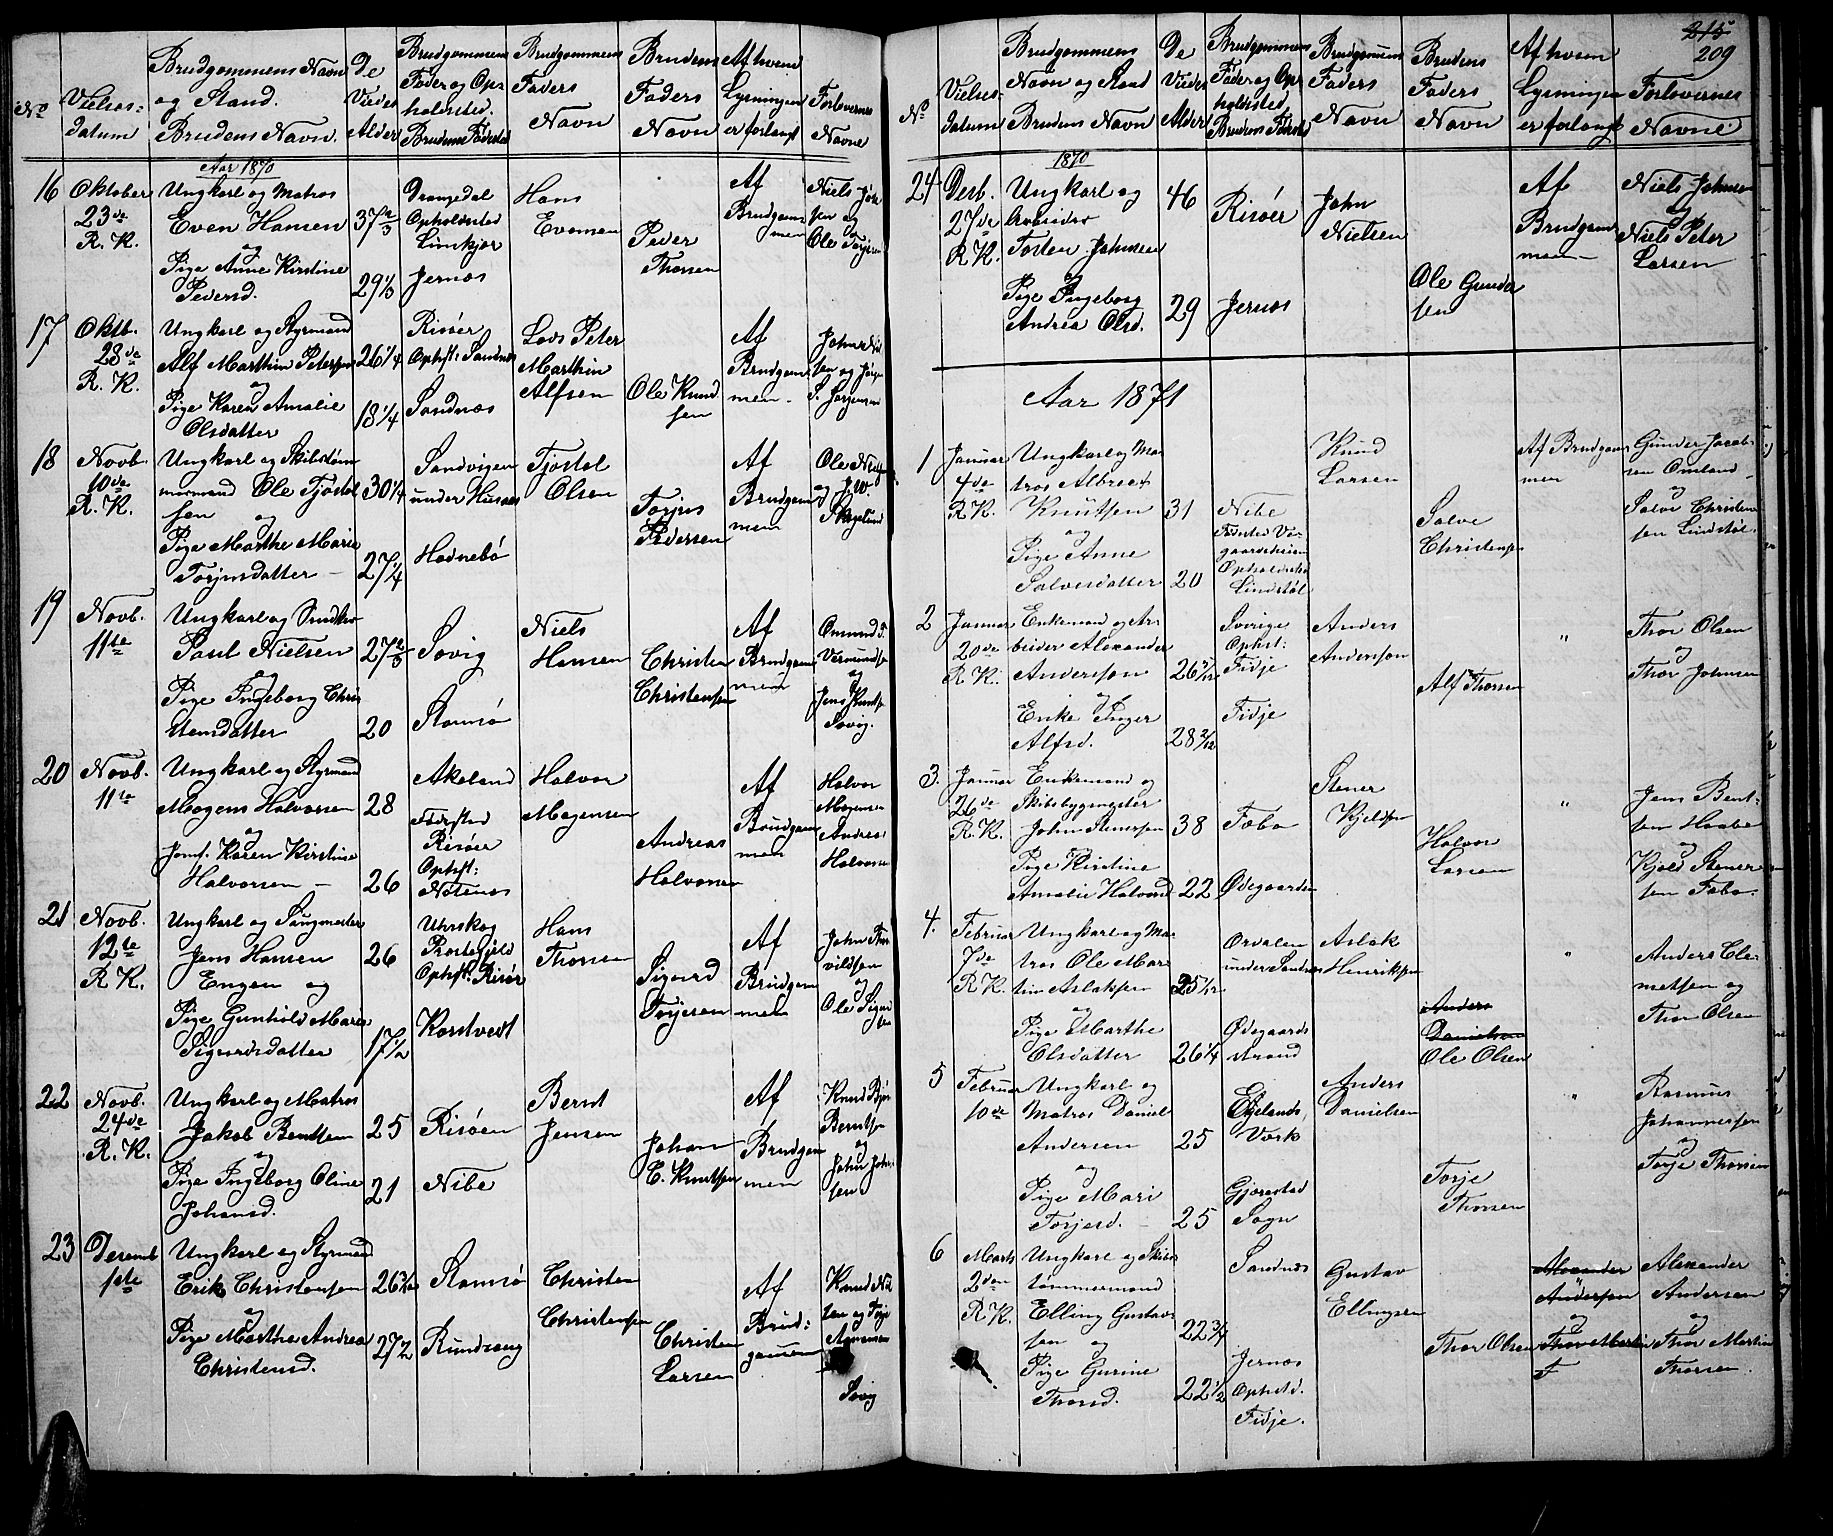 No
Vielses-
datum
Brudgommens Navn
og Stand.
Brudens Navn.
De
Viedes
Alder
Brudgommens
Føde og Op-
holdsted.
Brudens Fødested
Brudgommens
Faders
Navn
Brudens
Faders
Navn
Af hvem
Lysningen
er forlangt
Forlovernes
Navne
Aar 1870
16
Oktober
23de
R. K.
Ungkarl og Matros
Even Hansen
og
Pige Anne Kirstine
Pedersd.
37 2/3
29 1/3
Drangedal
Opholdsted
Limkjær
Jernæs
Hans
Evensen
Peder
Thorsen
Af
Brudgom-
men
Niels
og
17
Oktb.
28de
R. K.
Ungkarl og Styrmand
Alf Marthin Petersen
og
Pige Karen Amalie
Olsdatter
26 1/4
18 1/4
Risøer
Ophst: Sandnæs
Sandnæs
Lods Peter
Marthin
Alfsen
Ole Knud
sen
Af
Brudgom-
men
18
Novb.
10de
R. K.
Ungkarl og Skibstøm
mermand Ole Tjøstol
sen og
Pige Marthe Marie
Torjusdatter
30 1/4
27 1/4
Sandvigen
under
Hødnebø
Tjøstol
Olsen
Torjus
Pedersen
Af
Brudgom
men
19
Novb.
11te
Ungkarl og
Paul Nielsen
og
Pige Ingeborg Chris
tensdatter
27 2/3
20
Søvig
Stamsø
Niels
Hansen
Christen
Christensen
Af
Brudgom
men
Omund
og
Søvig.
20
Novb.
11te
Ungkarl og Styrmand
Mogens Halvorsen
og
Jomf. Karen Kirstine
Halvorsen
28
26
Akeland
Fødested
Risøer
Ophst:
Halvor
Mogensen
Andreas
Halvorsen
Af
Brudgom
men
Halvor
Mogensen
Andreas
Halvorsen
21
Novb.
12te
R. K.
Ungkarl og Saugmester
Jens Hansen
Engen og
Pige Gunhild Maria
Sigurdsdatter
26
17 1/2
Uhrskog
Præstegjeld
Ophst: Risør
Korstvedt
Hans
Thorsen
Sigurd
Terjesen
Af
Brudgom
men
John Thor
vildsen
og
Ole Sigur
sen
22
Novb.
24de
R. K.
Ungkarl og Matros
Jakob Berntsen
og
Pige Ingeborg Oline
Johansd.
25
21
Risøen
Nibe
Bernt
Jensen
Johan
E. Knutsen
Af
Brudgom
men
Knud
Berntsen
og
John John
sen
23
Desemb
1ste
Ungkarl og Styrmand
Erik Christensen
og
Pige Marthe Andrea
Christensd.
27 1/2
Stamsø
Rundvang
Christen
Christensen
Christen
Larsen
Af
Brud-
gommen
Søvig
215
209
No
Vielses-
datum
Brudgommens
Navn og Stand
Brudens Navn
De
Viedes
Alder
Brudgommens
Føde og Op-
holdsted,
Brudens Fødested
Brudgommens
Faders
Navn
Brudens
Faders
Navn
Af hvem
Lysningen
er forlangt
Forlovernes
Navne
1870
24
Desb.
27de
R K.
Ungkarl og
Arbeider
Johnsen
og
Pige Ingeborg
Andrea Olsd.
46
29
Risøer
Jernæs
John
Nielsen
Ole Gunder
sen
Af
Brudgom
men
Niels Johnsen
og
Niels Peter
Larsen
Aar 1871
1
Januar
4de
R K.
Ungkarl og Ma
tros Albrect
Knutsen
og
Pige Anne
Salvesdatter
31
20
Nibe
Fødested Ve-
gaardsheien
Opholdsted
Lindstøl
Knud
Larsen
Salve
Christensen
Af Brudgom
men
Gunder Jacob-
sen Omland
og
Salve Christen
sen Lindstøl
2
Januar
20de
R K.
Enkemand og Ar
beider Alexander
Andersson
og
Enke Inger
Alfsd.
26 7/12
28 2/12
Sverige
Ophst:
Fidje
Fidje
Anders
Andersson
Alf Thorsen
"
Thor Olsen
og
Thor Johnsen
3.
Januar
26de
R. K.
Enkemand og
Skibsbygmester
John Stenersen
og
Pige Kirstine
Amalie Halvorsd
38
22
Fæbo
Ødegaarden
Stener
Kjeldsen
Halvor
Larsen
"
Jens Bent-
sen
og
Kjeld Stener
sen Fæbo
4.
Februar
7de
R K.
Ungkarl og Ma
tros Ole Mar
tin Aslaksen
og
Pige Marthe
Olsdatter
26 1/4
under Sandnæs
Ødegaards
strand
Aslak
Henriksen
Anders
Danielsen
Ole Olsen
"
Anders Cle
metsen og
Thor Olsen
5
Februar
10de
Ungkarl og
Matros Daniel
Andersen
og
Pige Mari
Torjesd.
25
25
Egelands
Værk
Gjerestad
Sogn
Anders
Danielsen
Torje
Thorsen
"
Rasmus
Johannessen
og
Torje Thorsen
6
Marts
2den
R K.
Ungkarl og Skibs
tømmermand
Elling Gustav
sen og
Pige Gurine
Thorsd.
22 3/4
22 1/2
Sandnæs
Jernæs
Ophold.
Fidje.
Gustav
Ellingsen
Thor Olsen
Alexander
Andersen
og
Thor Martin
T
Alexander
Andersen
og
Thor Martin
Thorsen